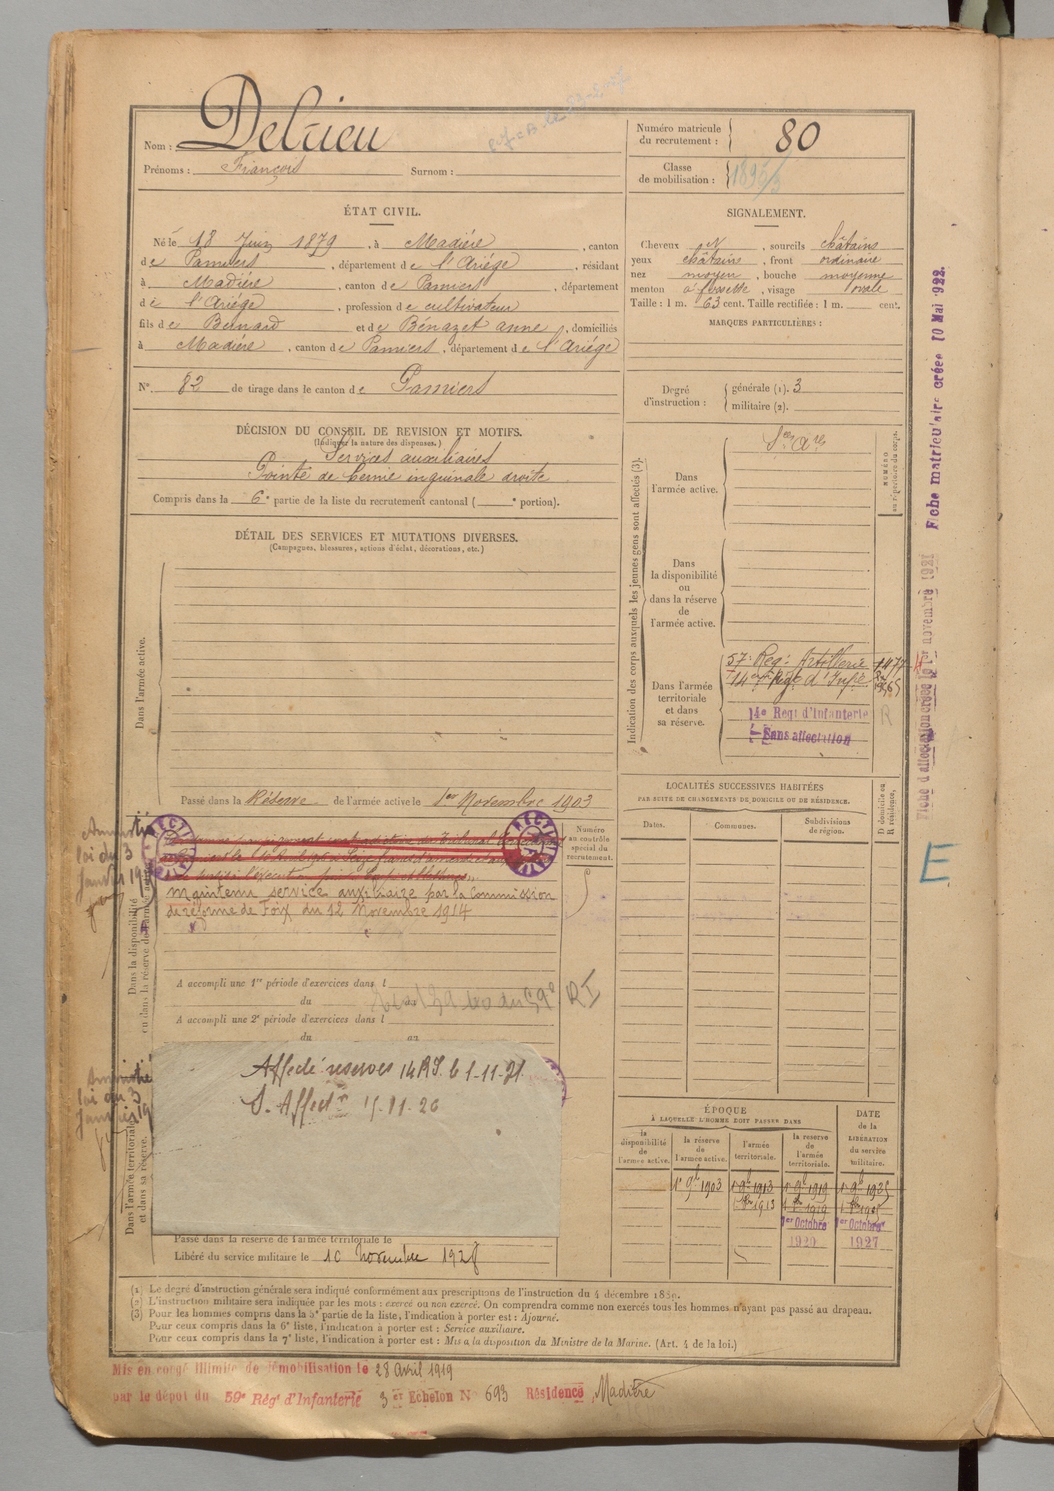 Nom : Delrieu
Prénoms : François Surnom :
Numéro matricule du recrutement : 80
Classe de mobilisation : 1896/3
ÉTAT CIVIL.
Né le 18 Juin 1879, à Madière, canton
de Pamiers, département de l'Ariège, résidant
à Madière, canton de Pamiers, département
de l'Ariège, profession de cultivateur
fils de Bernard et de Bénazet anne, domiciliés
à Madière, canton de Pamiers, département de l'Ariège
N° 82 de tirage dans le canton de Pamiers
DÉCISION DU CONSEIL DE REVISION ET MOTIFS.
(Indiquer la nature des dispenses.)
Services auxiliaires
Pointe de hernie inguinale droite
Compris dans la 6e partie de la liste du recrutement cantonal ( e portion).
SIGNALEMENT.
Cheveux N, sourcils châtains
yeux châtains, front ordinaire
nez moyen, bouche moyenne
menton à fossette, visage ovale
Taille : 1 m. 63 cent. Taille rectifiée : 1 m. cent.
MARQUES PARTICULIÈRES :
Degré d'instruction : générale (1). 3
militaire (2).
DÉTAIL DES SERVICES ET MUTATIONS DIVERSES.
(Campagnes, blessures, actions d'éclat, décorations, etc.)
Dans l'armée active.
Passé dans la Réserve de l'armée active le 1er Novembre 1903
Indication des corps auxquels les jeunes gens sont affectés (3).
NUMÉRO au répertoire du corps.
Dans l'armée active.
Dans la disponibilité ou dans la réserve de l'armée active.
Dans l'armée territoriale et dans sa réserve.
57e Reg: Artillerie
14e Regt d'Infanterie
Sans affectation
R
Amnistié
loi du 3
Janvier 19
RECTIFICATION
RECTIFICATION
maintenu service auxiliaire par la Commission
de réforme de Foix du 12 Novembre 1914
Dans la disponibilité ou dans la réserve de l'armée active.
Numéro au contrôle spécial du recrutement.
A accompli une 1re période d'exercices dans l
du au
RI
A accompli une 2e période d'exercices dans l
du au
Amnistié
loi du 3
Janvier 19
Dans l'armée territoriale et dans sa réserve.
Affecté réserves 14 RI le 1-11-21
S. Affectn 15-11-26
Passé dans la réserve de l'armée territoriale le
Libéré du service militaire le 10 novembre 1928
LOCALITÉS SUCCESSIVES HABITÉES
PAR SUITE DE CHANGEMENTS DE DOMICILE OU DE RÉSIDENCE.
D domicile ou R résidence,
Dates. Communes. Subdivisions de région.
ÉPOQUE
À LAQUELLE L'HOMME DOIT PASSER DANS
DATE de la LIBÉRATION du service militaire.
la disponibilité de l'armée active.
la réserve de l'armée active.
l'armée territoriale.
la réserve de l'armée territoriale.
1er 9bre 1903 1er 9bre 1913 1er 9bre 1919
1er Octobre 1920
1er Octobre 1927
(1) Le degré d'instruction générale sera indiqué conformément aux prescriptions de l'instruction du 4 décembre 1889.
(2) L'instruction militaire sera indiquée par les mots : exercé ou non exercé. On comprendra comme non exercés tous les hommes n'ayant pas passé au drapeau.
(3) Pour les hommes compris dans la 5e partie de la liste, l'indication à porter est : Ajourné.
Pour ceux compris dans la 6e liste, l'indication à porter est : Service auxiliaire.
Pour ceux compris dans la 7e liste, l'indication à porter est : Mis à la disposition du Ministre de la Marine. (Art. 4 de la loi.)
Mis en congé illimité de démobilisation le 28 Avril 1919
par le dépôt du 59e Régt d'Infanterie 3 er Echelon N° 693 Résidence Madière
Fiche matriculaire créée 10 Mai 1922.
Fiche d'affectation créée le 1er novembre 1921
E